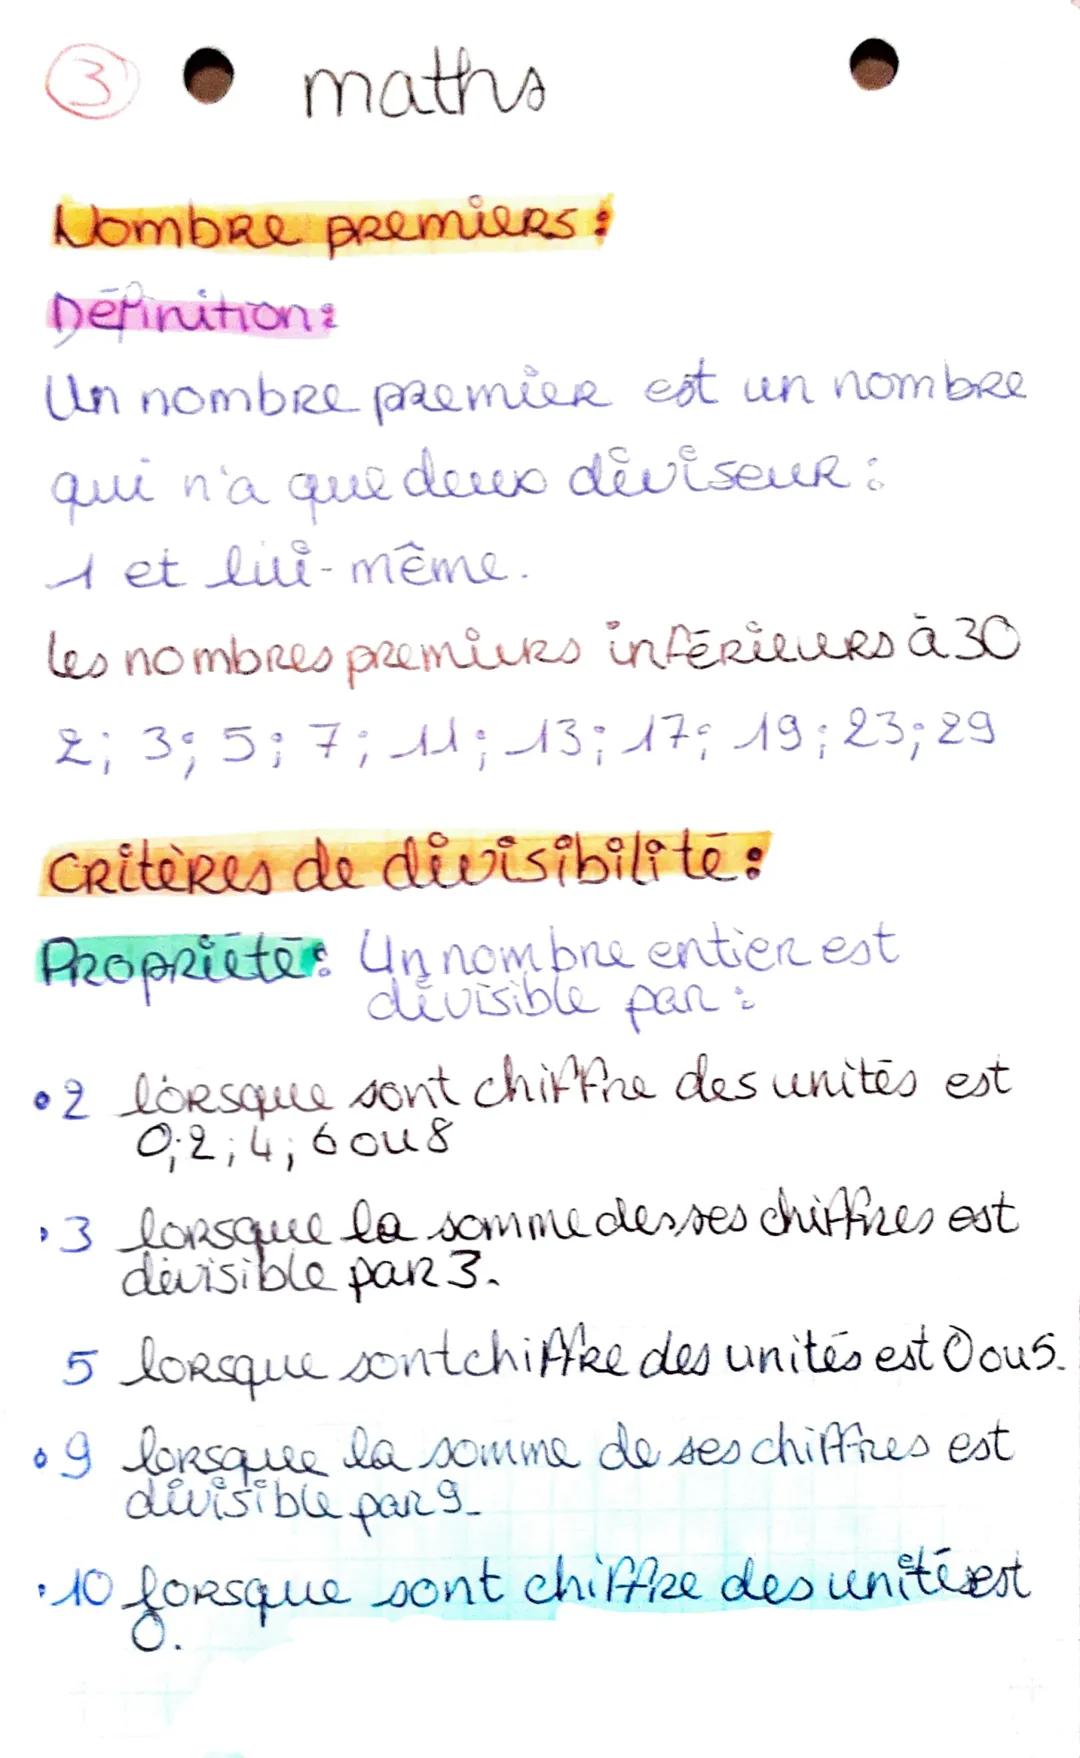 3 maths
Nombre premiers :
Définition :
Un nombre premier est un nombre
qui n'a que deux diviseur :
1 et lui-même.
les nombres premiers inférieurs à 30
2; 3; 5; 7; 11; 13; 17; 19; 23; 29
Critères de divisibilité :
Propriété : Un nombre entier est
divisible par :
• 2 lorsque sont chiffre des unités est
0; 2; 4; 6 ou 8
• 3 lorsque la somme desses chiffres est
divisible par 3.
5 lorsque sont chiffre des unités est 0 ou 5.
• 9 lorsque la somme de ses chiffres est
divisible par 9.
• 10 lorsque sont chiffre des unités est
0.